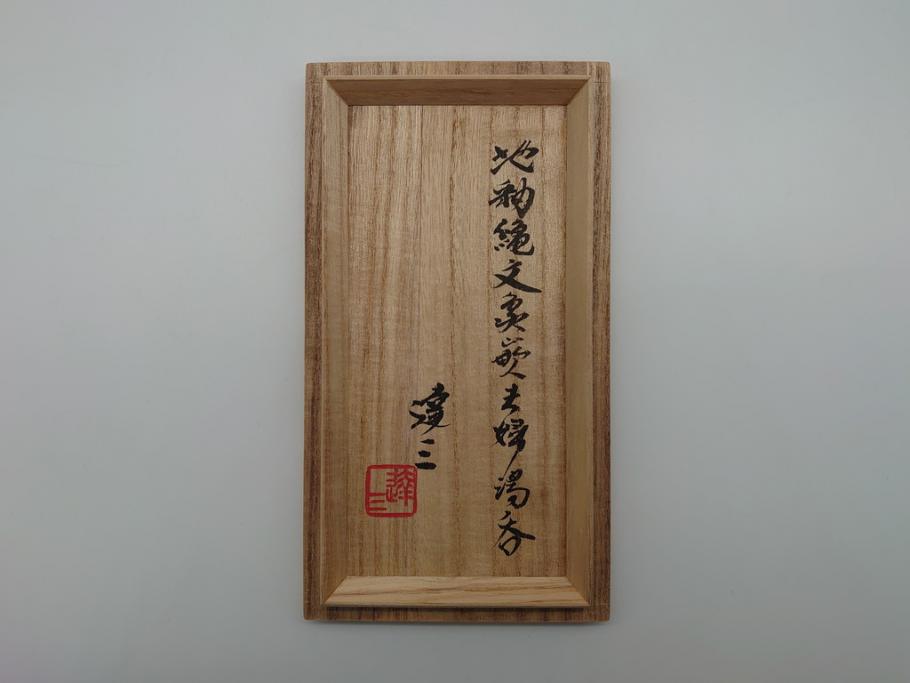 地釉縄文象嵌夫婦湯呑
達三
達三